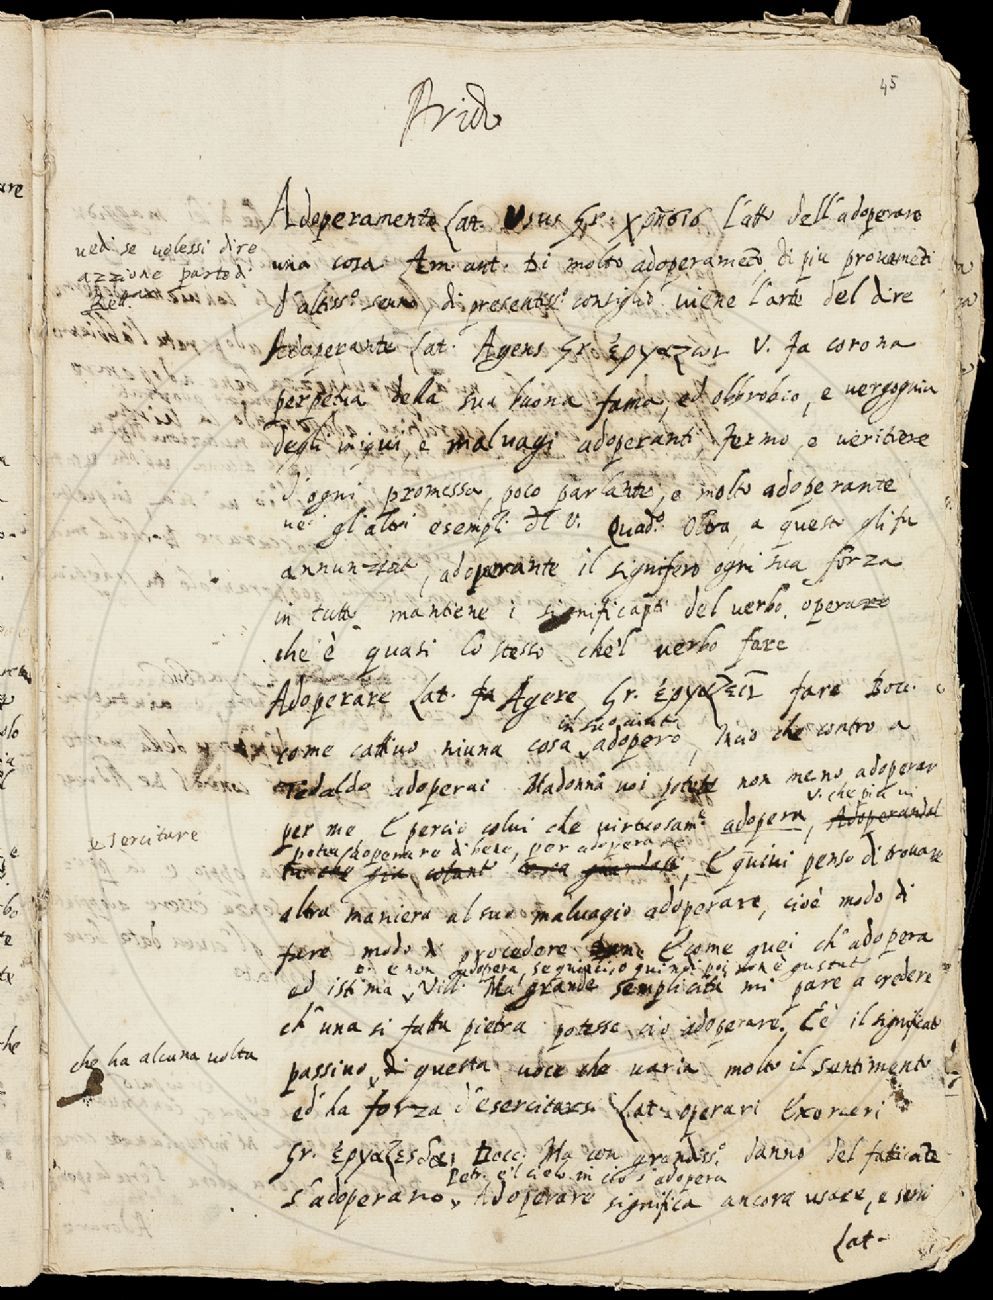 45
Arido
Adoperamento Lat. Usus Gr: χρῆσισ L'atto dell'adoperare
vedi se volessi dire
azzione parte di
Ret.
una cosa Am. ant. Di molto adoperamẽto, di piu provamẽti
d'altiss.º senno, di presentiss.º consiglio viene l'arte del dire
Adoperante Lat. Agens Gr. ἐργαζων V. fa corona
perpetua della sua buona fama, ed obbrobrio, e vergogna
degli iniqui, e malvagi adoperanti, fermo, e veritiere
d'ogni promessa, poco parlante, e molto adoperante
ve' gl'altri esempli del V. Quad.º Oltra a questo gli fu
annunziata, adoperante il signifero ogni sua forza
in tutto mantiene i significati del verbo operare
che è quasi lo stesso che'l verbo fare
Adoperare Lat. Agere, Gr. ἐργαζειν fare Bocc.
in sua vita
come cattivo niuna cosa adoperò, cio che contro a
Tedaldo adoperai Madonna voi potete non meno adoperar
V. che più vi
per me E percio colui che virtuosam.e adopera, Adoperandol
esercitare
potea adoperare di bene, per adoperare
E quivi penso di trovare
altra maniera al suo malvagio adoperare, cioè modo di
fare modo di procedere E come quei ch'adopera
e non adopera, quindi poi non è gustat
ed istima, Vill. Ma grande semplicità mi pare a credere
ch'una si fatta pietra potesse cio adoperare. C'è il significato
che ha alcuna volta
passivo di questa voce che varia molto il sentimento
ed ha forza d'esercitarsi Lat. operari Exerceri
Gr. ἐργαζεσθαι Bocc. Ma con grandiss.º danno del faticate
Petr. e'l cielo in cio s'adopera
s'adoperano, Adoperare significa ancora usare, e servi
Lat.